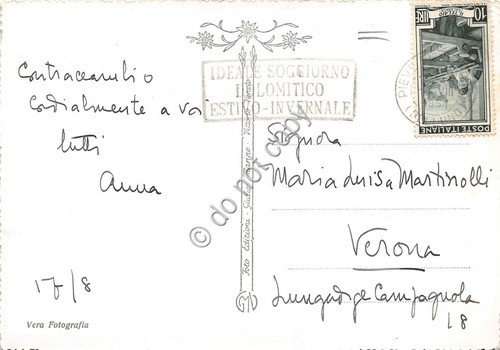 Contraccambio
Cordialmente a voi
tutti
Anna
17/8
Vera Fotografia
IDEALE SOGGIORNO
DOLOMITICO
ESTIVO-INVERNALE
10 LIRE
POSTE ITALIANE
Foto Edizioni
do not copy
Signora
Maria Luisa Martinolli
Verona
Lungadige Campagnola
18